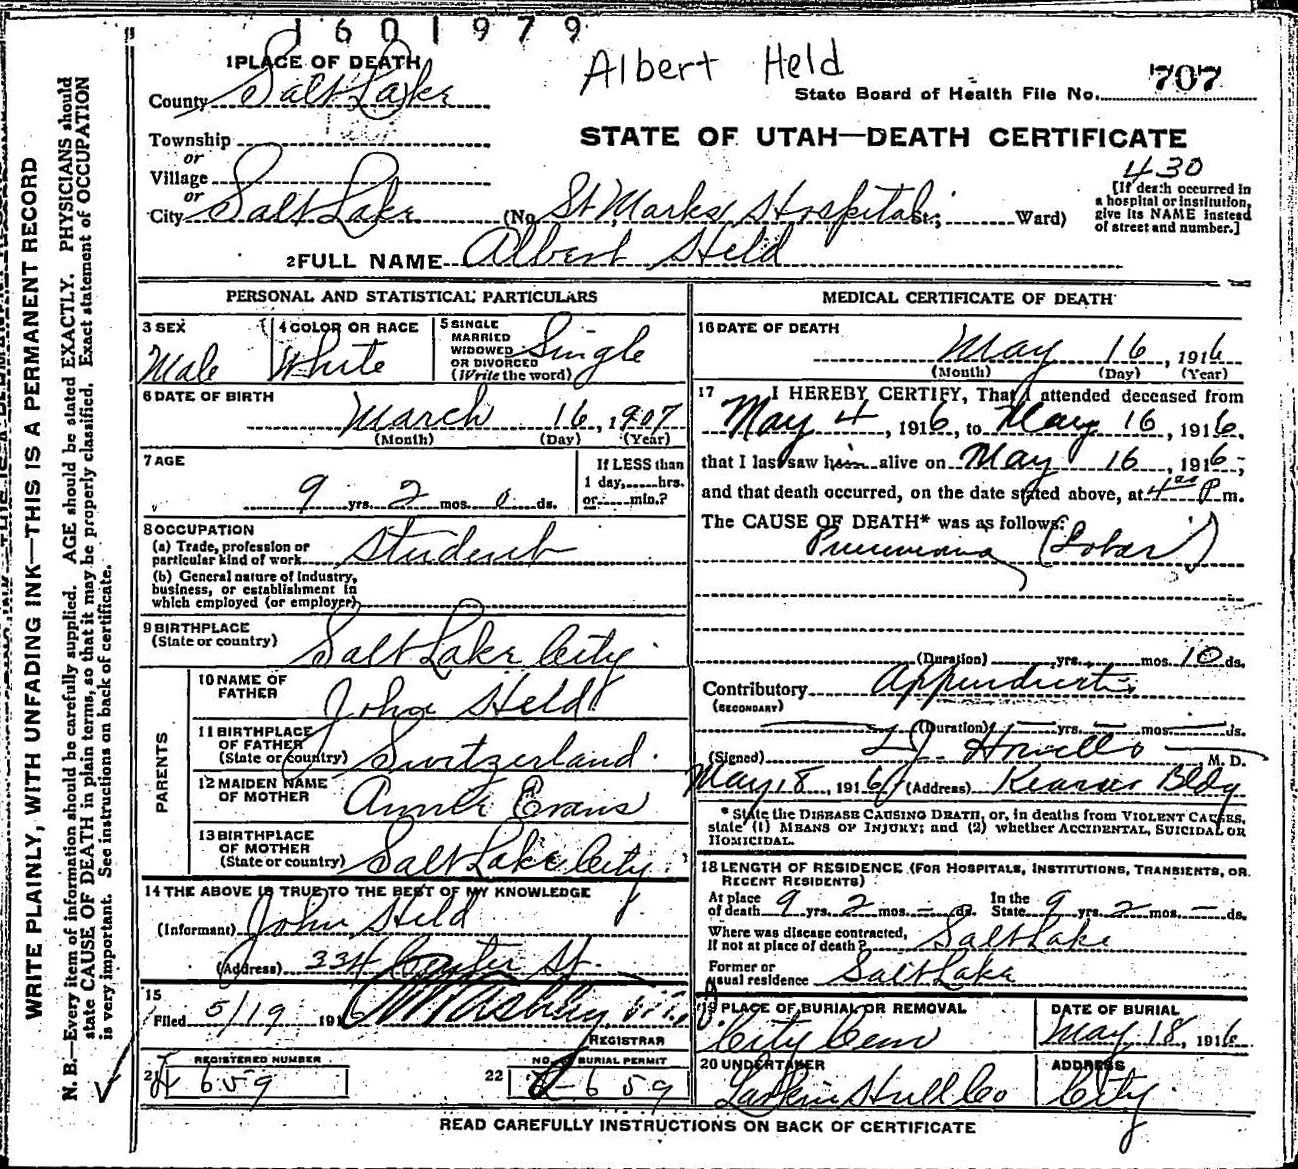 1601979
Albert Held
1 PLACE OF DEATH
County Salt Lake
State Board of Health File No. 707
Township
or
STATE OF UTAH—DEATH CERTIFICATE
430
Village
or
City Salt Lake (No. St Marks Hospital St.; Ward)
[If death occurred in
a hospital or institution,
give its NAME instead
of street and number.]
2 FULL NAME Albert Held
PERSONAL AND STATISTICAL PARTICULARS
3 SEX
Male
4 COLOR OR RACE
White
5 SINGLE
MARRIED
WIDOWED
OR DIVORCED
(Write the word)
Single
6 DATE OF BIRTH
March 16, 1907
(Month) (Day) (Year)
7 AGE
9 yrs. 2 mos. 0 ds.
If LESS than
1 day, hrs.
or min.?
8 OCCUPATION
(a) Trade, profession or
particular kind of work Student
(b) General nature of industry,
business, or establishment in
which employed (or employer)
9 BIRTHPLACE
(State or country) Salt Lake City
PARENTS
10 NAME OF
FATHER John Held
11 BIRTHPLACE
OF FATHER
(State or country) Switzerland
12 MAIDEN NAME
OF MOTHER Annie Evans
13 BIRTHPLACE
OF MOTHER
(State or country) Salt Lake City
14 THE ABOVE IS TRUE TO THE BEST OF MY KNOWLEDGE
(Informant) John Held
(Address) 334 St.
15
Filed 5/19 1916
REGISTRAR
21 REGISTERED NUMBER
659
22 NO. BURIAL PERMIT
659
MEDICAL CERTIFICATE OF DEATH
16 DATE OF DEATH
May 16, 1916
(Month) (Day) (Year)
17 I HEREBY CERTIFY, That I attended deceased from
May 4, 1916, to May 16, 1916,
that I last saw him alive on May 16, 1916;
and that death occurred, on the date stated above, at 4 P m.
The CAUSE OF DEATH* was as follows:
Pneumonia (Lobar)
(Duration) yrs. mos. 10 ds.
Contributory Appendicitis
(SECONDARY)
(Duration) — yrs. — mos. — ds.
(Signed) M. D.
May 18, 1916 (Address) Kearns Bldg
* State the DISEASE CAUSING DEATH, or, in deaths from VIOLENT CAUSES,
state (1) MEANS OF INJURY; and (2) whether ACCIDENTAL, SUICIDAL OR
HOMICIDAL.
18 LENGTH OF RESIDENCE (FOR HOSPITALS, INSTITUTIONS, TRANSIENTS, OR
RECENT RESIDENTS)
At place
of death 9 yrs. 2 mos. — ds.
In the
State 9 yrs. 2 mos. — ds.
Where was disease contracted,
if not at place of death? Salt Lake
Former or
usual residence Salt Lake
19 PLACE OF BURIAL OR REMOVAL
City Cem
DATE OF BURIAL
May 18, 1916
20 UNDERTAKER
Larkin Hull Co
ADDRESS
City
READ CAREFULLY INSTRUCTIONS ON BACK OF CERTIFICATE
WRITE PLAINLY, WITH UNFADING INK—THIS IS A PERMANENT RECORD
N. B.—Every item of information should be carefully supplied. AGE should be stated EXACTLY. PHYSICIANS should
state CAUSE OF DEATH in plain terms, so that it may be properly classified. Exact statement of OCCUPATION
is very important. See instructions on back of certificate.